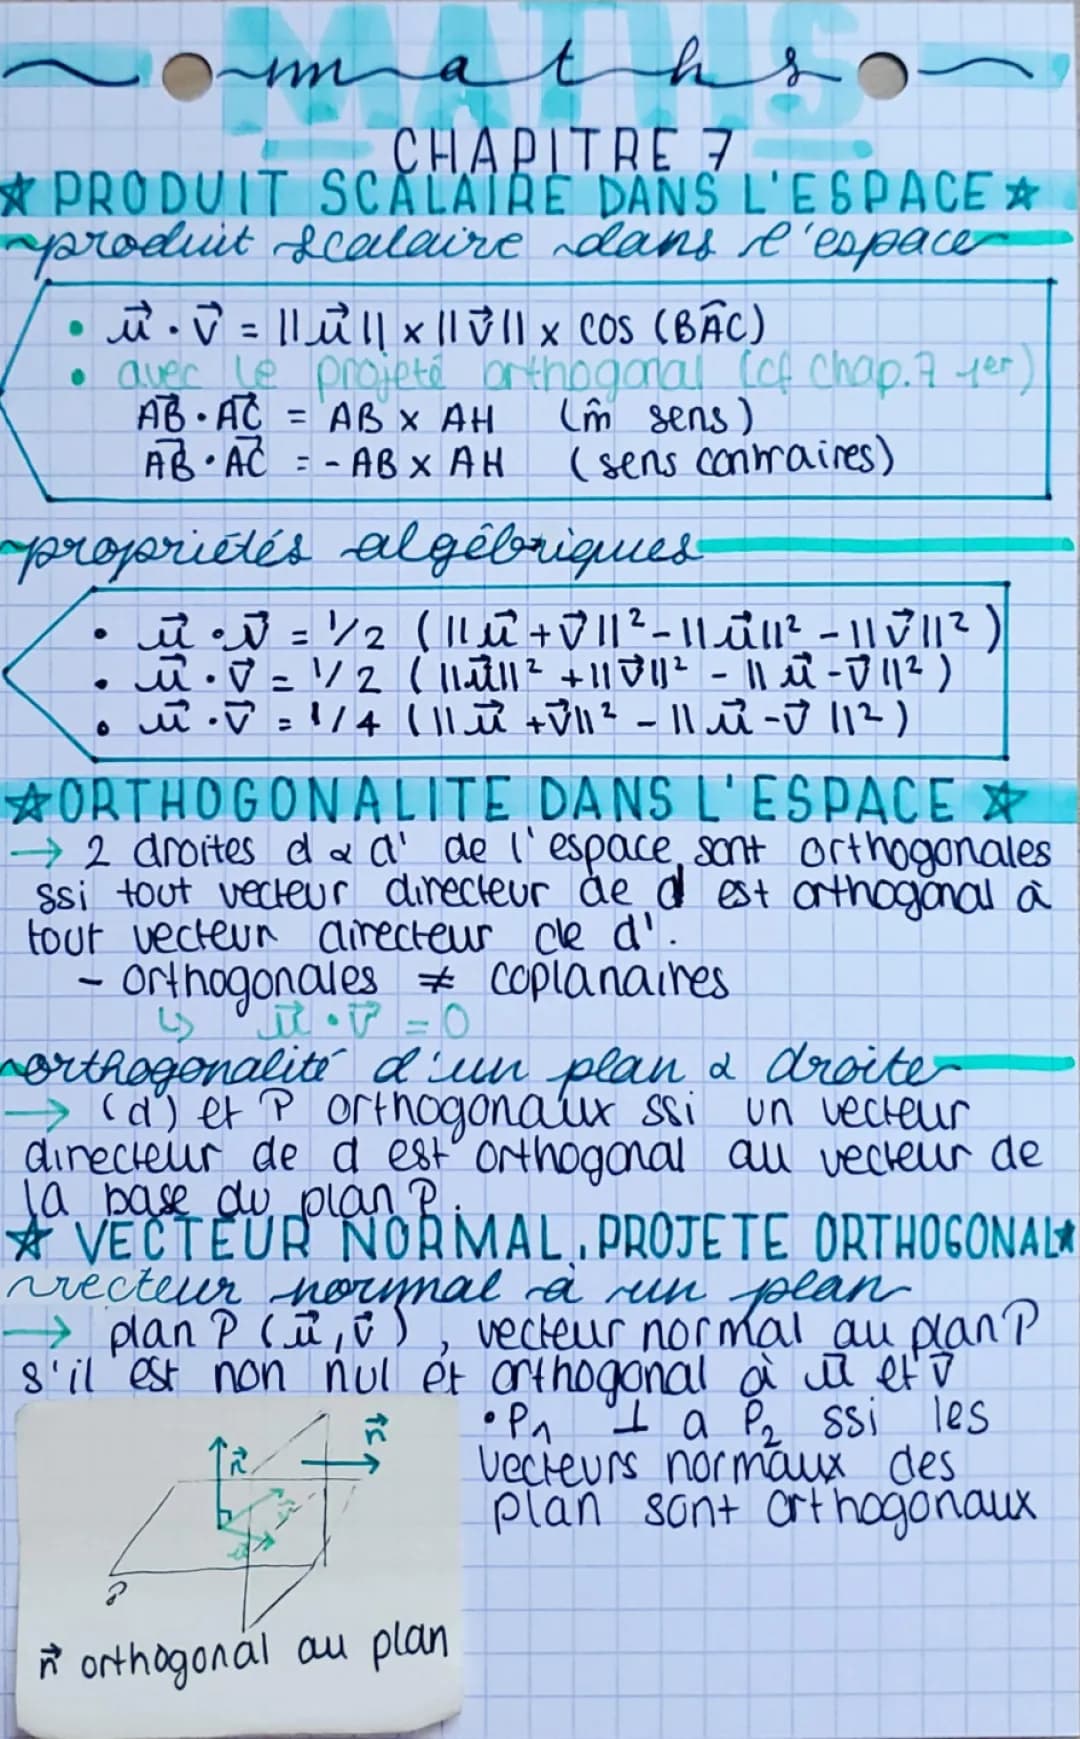 MATHS
maths
CHAPITRE 7
☆ PRODUIT SCALAIRE DANS L'ESPACE ☆
produit scalaire dans l'espace
• u⃗ · v⃗ = ||u⃗|| x ||v⃗|| x cos (BÂC)
• avec le projeté orthogonal (cf chap.7 1er)
AB⃗ · AC⃗ = AB x AH (m̂ sens)
AB⃗ · AC⃗ = - AB x AH (sens contraires)
propriétés algébriques
• u⃗ · v⃗ = 1/2 (||u⃗ + v⃗||² - ||u⃗||² - ||v⃗||²)
• u⃗ · v⃗ = 1/2 (||u⃗||² + ||v⃗||² - ||u⃗ - v⃗||²)
• u⃗ · v⃗ = 1/4 (||u⃗ + v⃗||² - ||u⃗ - v⃗||²)
☆ ORTHOGONALITE DANS L'ESPACE ☆
→ 2 droites d & d' de l'espace sont orthogonales
ssi tout vecteur directeur de d est orthogonal à
tout vecteur directeur de d'.
- orthogonales ≠ coplanaires
↳ u⃗ · v⃗ = 0
orthogonalité d'un plan & droite
→ (d) et P orthogonaux ssi un vecteur
directeur de d est orthogonal au vecteur de
la base du plan P.
☆ VECTEUR NORMAL, PROJETE ORTHOGONAL ☆
vecteur normal à un plan
→ plan P (u⃗, v⃗), vecteur normal au plan P
s'il est non nul et orthogonal à u⃗ et v⃗
• P₁ ⊥ a P₂ ssi les
vecteurs normaux des
plan sont orthogonaux
n⃗
n⃗
v⃗
u⃗
P
n⃗ orthogonal au plan